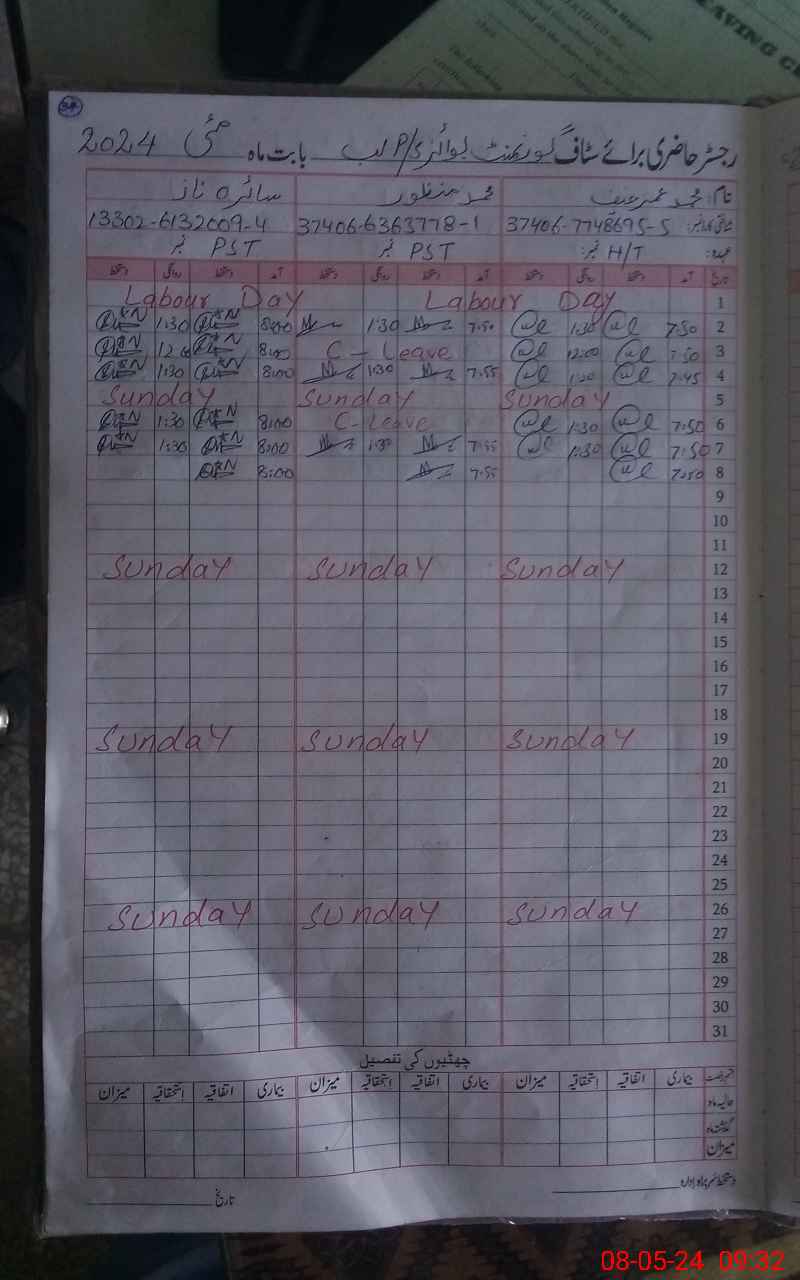 رجسٹر حاضری برائے سٹاف گورنمنٹ بوائز P/ بابت ماہ مئی 2024
نام: محمد محمد منظور سائرہ ناز
37406-7748695-5 37406-6363778-1 13302-6132009-4
عہدہ: H/T نمبر: PST نمبر PST نمبر
تاریخ آمد دستخط روانگی دستخط آمد دستخط روانگی دستخط آمد دستخط روانگی دستخط
1 Labour Day Labour Day
2 7:50 1:30 7:50 1:30 8:00 1:30
3 7:50 12:00 C-Leave 8:00
4 7:45 1:30 7:55 1:30 8:00 1:30
5 Sunday Sunday Sunday
6 7:50 1:30 C-Leave 8:00 1:30
7 7:50 1:30 7:55 1:30 8:00 1:30
8 7:50 7:55 8:00
9
10
11
12 Sunday Sunday Sunday
13
14
15
16
17
18
19 Sunday Sunday Sunday
20
21
22
23
24
25
26 Sunday Sunday Sunday
27
28
29
30
31
چھٹیوں کی تفصیل
بیماری اتفاقیہ استحقاقیہ میزان بیماری اتفاقیہ استحقاقیہ میزان بیماری اتفاقیہ استحقاقیہ میزان
حالیہ ماہ
گذشتہ ماہ
میزان
دستخط سربراہ ادارہ
تاریخ
08-05-24 09:32